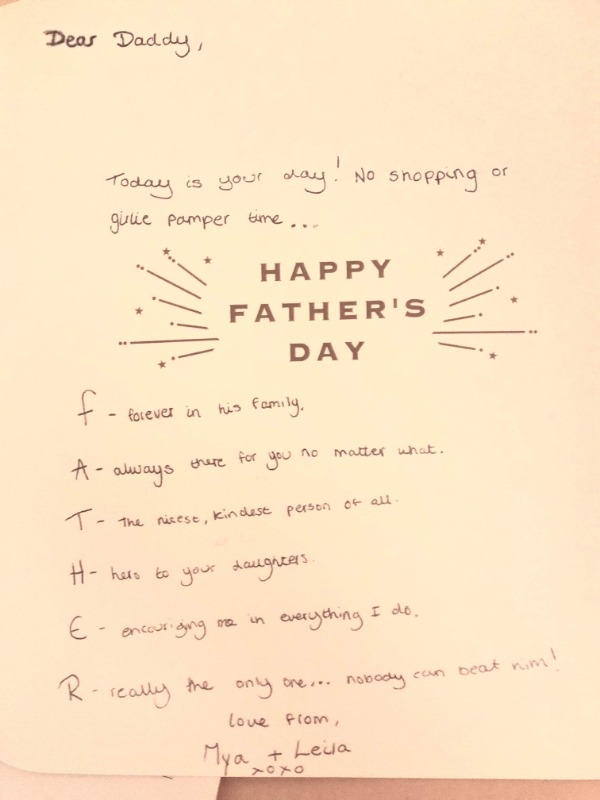 Dear Daddy,
Today is your day! No shopping or
girlie pamper time...
HAPPY
FATHER'S
DAY
F - forever in his family.
A - always there for you no matter what.
T - the nicest, kindest person of all.
H - hero to your daughters.
E - encouriging me in everything I do.
R - really the only one... nobody can beat him!
love from,
Mya + Leila
xoxo